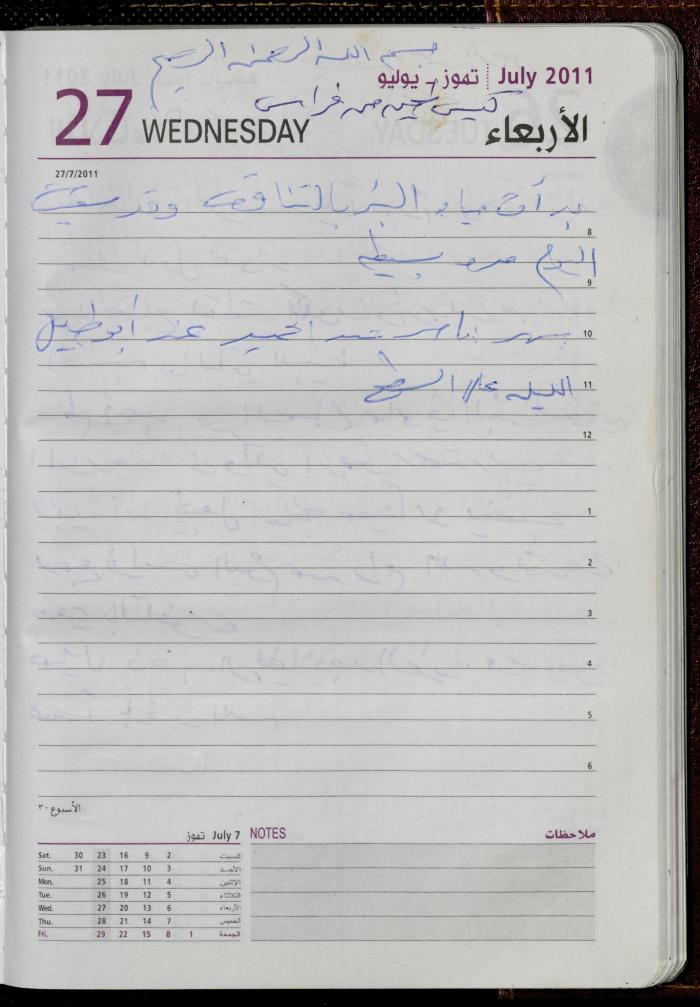 بسم الله الرحمن الرحيم
تموز - يوليو July 2011
كيس طحين من فراس
27 WEDNESDAY الأربعاء
27/7/2011
بدأت مياه البئر بالتناقص وقد سقيت
8
اليوم مرو بسيط
9
سهر ناصر عبد الحميد عند أبو طبيل
10
الليله على السطح
11
12
1
2
3
4
5
6
الأسبوع ٣٠
July 7 تموز
Sat. 30 23 16 9 2 السبت
Sun. 31 24 17 10 3 الأحد
Mon. 25 18 11 4 الإثنين
Tue. 26 19 12 5 الثلاثاء
Wed. 27 20 13 6 الأربعاء
Thu. 28 21 14 7 الخميس
Fri. 29 22 15 8 1 الجمعة
NOTES ملاحظات